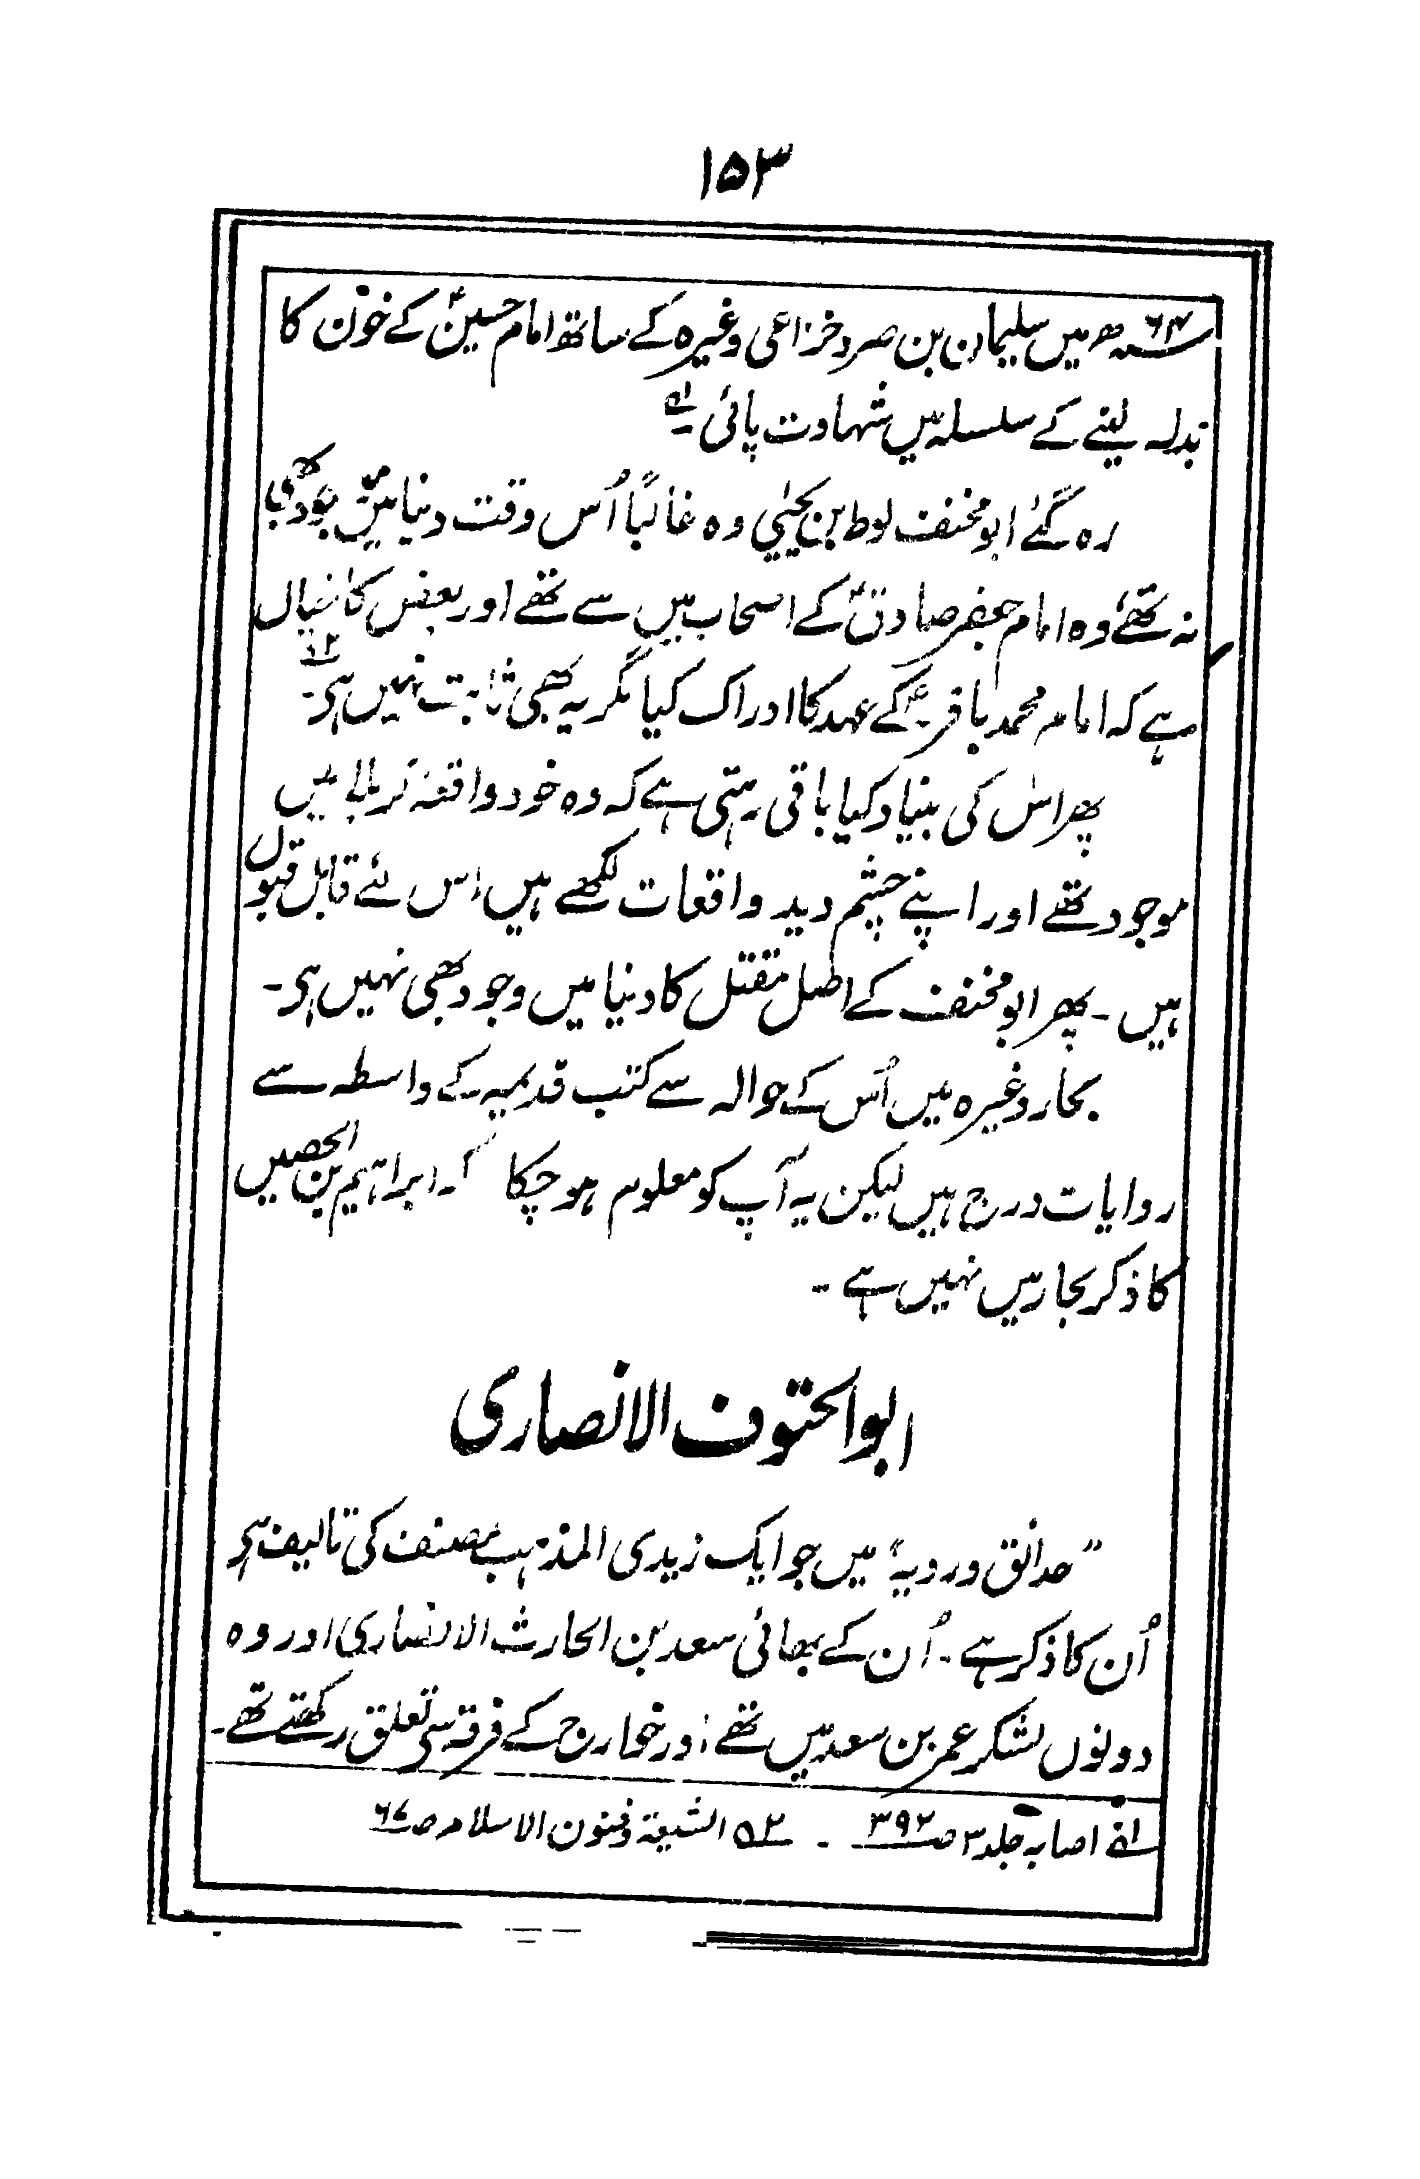 ۱۵۳
۶۴ھ میں سلیمان بن صرد خزاعی وغیرہ کے ساتھ امام حسینؑ کے خون کا
بدلہ لینے کے سلسلہ میں شہادت پائی۔ لہ
رہ گئے ابو مخنف لوط بن یحیٰی وہ غالبًا اُس وقت دنیا میں موجود بھی
نہ تھے وہ امام جعفر صادقؑ کے اصحاب میں سے تھے اور بعض کا خیال
ہے کہ امام محمد باقرؑ کے عہد کا ادراک کیا مگر یہ بھی ثابت نہیں ہی۔ ۲ہ
پھر اس کی بنیاد کیا باقی رہتی ہے کہ وہ خود واقعہ کربلا میں
موجود تھے اور اپنے چشم دید واقعات لکھے ہیں اس لئے قابل قبول
ہیں۔ پھر ابو مخنف کے اصل مقتل کا دنیا میں وجود بھی نہیں ہی۔
بحار وغیرہ میں اُس کے حوالہ سے کتب قدیمہ کے واسطہ سے
روایات درج ہیں لیکن یہ آپ کو معلوم ہو چکا کہ ابراہیم بن الحصیں
کا ذکر بحار میں نہیں ہے۔
ابو الحتوف الانصاری
”حدائق وردیہ“ میں جو ایک زیدی المذہب مصنف کی تالیف ہی
اُن کا ذکر ہے۔ اُن کے بھائی سعد بن الحارث الانصاری اور وہ
دونوں لشکر عمر بن سعد میں تھے اور خوارج کے فرقہ سی تعلق رکھتے تھے۔
لہ اصابہ جلد ۳ ص۳۹۲ ۔ ۲ہ الشیعۃ وفنون الاسلام ص۶۷